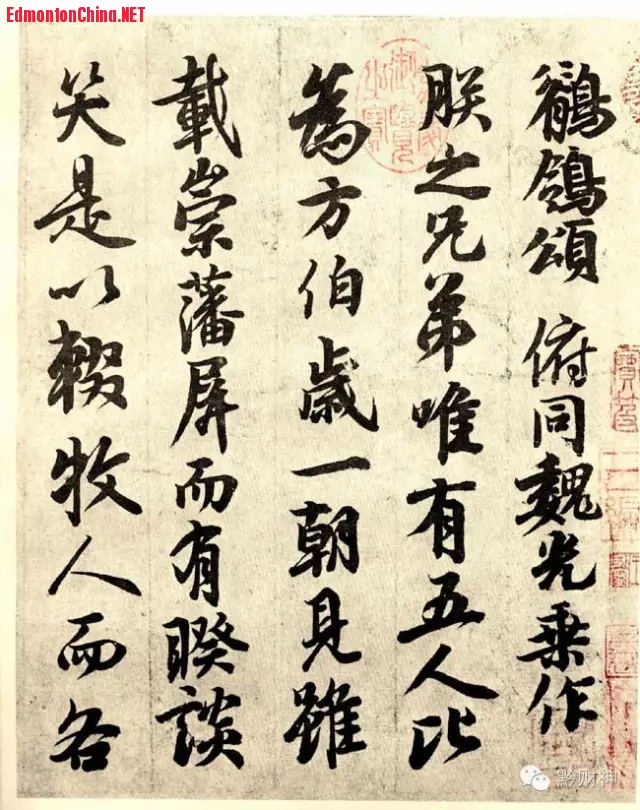 EdmontonChina.NET
鶺鴒頌 俯同魏光乗作
朕之兄弟唯有五人比
為方伯歳一朝見雖
載崇藩屏而有睽談
笑是以輟牧人而各
黔财神